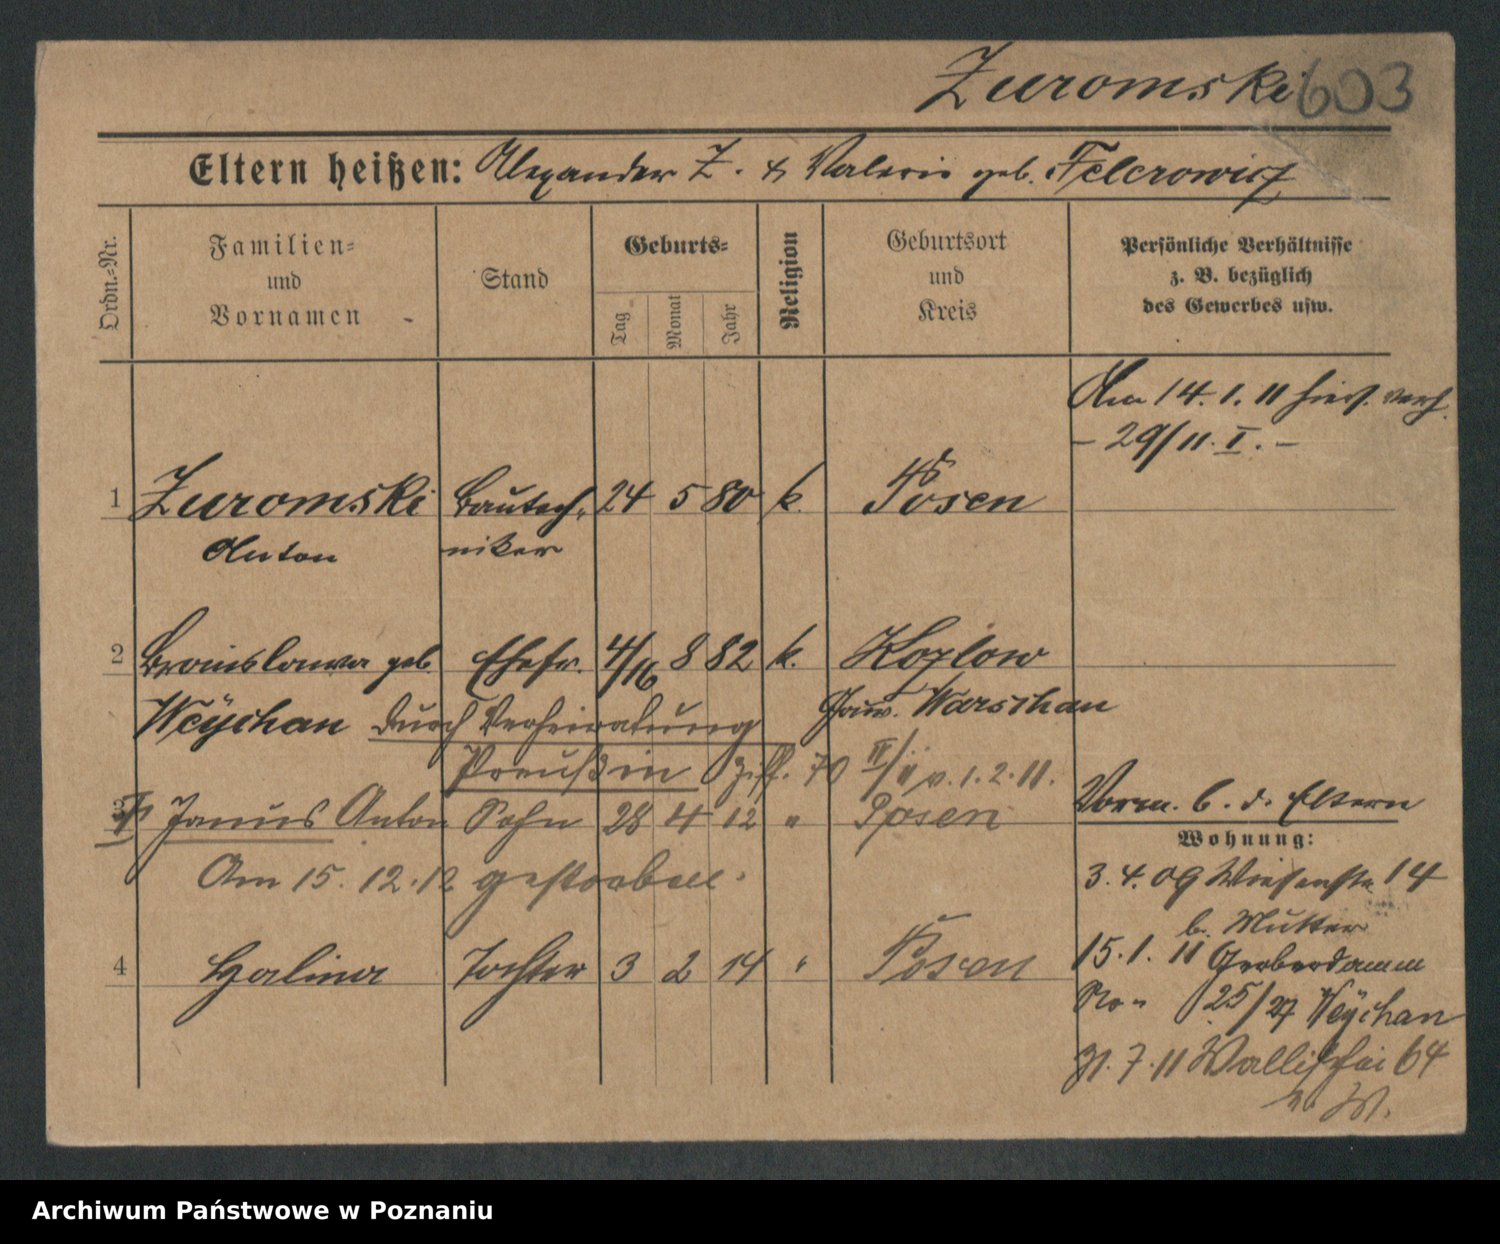 Zuromski 603
Eltern heißen: Alexander Z. & Valerie geb. Felcrowicz
Ordn.=Nr.
Familien=
und
Vornamen
Stand
Geburts=
Tag
Monat
Jahr
Religion
Geburtsort
und
Kreis
Persönliche Verhältnisse
z. B. bezüglich
des Gewerbes usw.
Am 14. 1. 11 hier verh.
– 29/11. I. –
1 Zuromski Bautech= 24 5 80 k. Posen
Anton niker
2 Bronislawa geb. Ehefr. 4/16 8 82 k. Kozlow
Weÿchan durch Verheiratung Gouv. Warschau
Preußin Ziff. 70 v. 1. 2. 11.
3 Janus Anton Sohn 28 4 12 " Posen
Am 15. 12. 12 gestorben.
4 Halina Tochter 3 2 14 " Posen
Vorm. b. d. Eltern
Wohnung:
3. 4. 09 Wiesenstr. 14
b. Mutter
15. 1. 11 Gerberdamm
No " 25/27 Weÿchan
7. 11 Wallischei 64